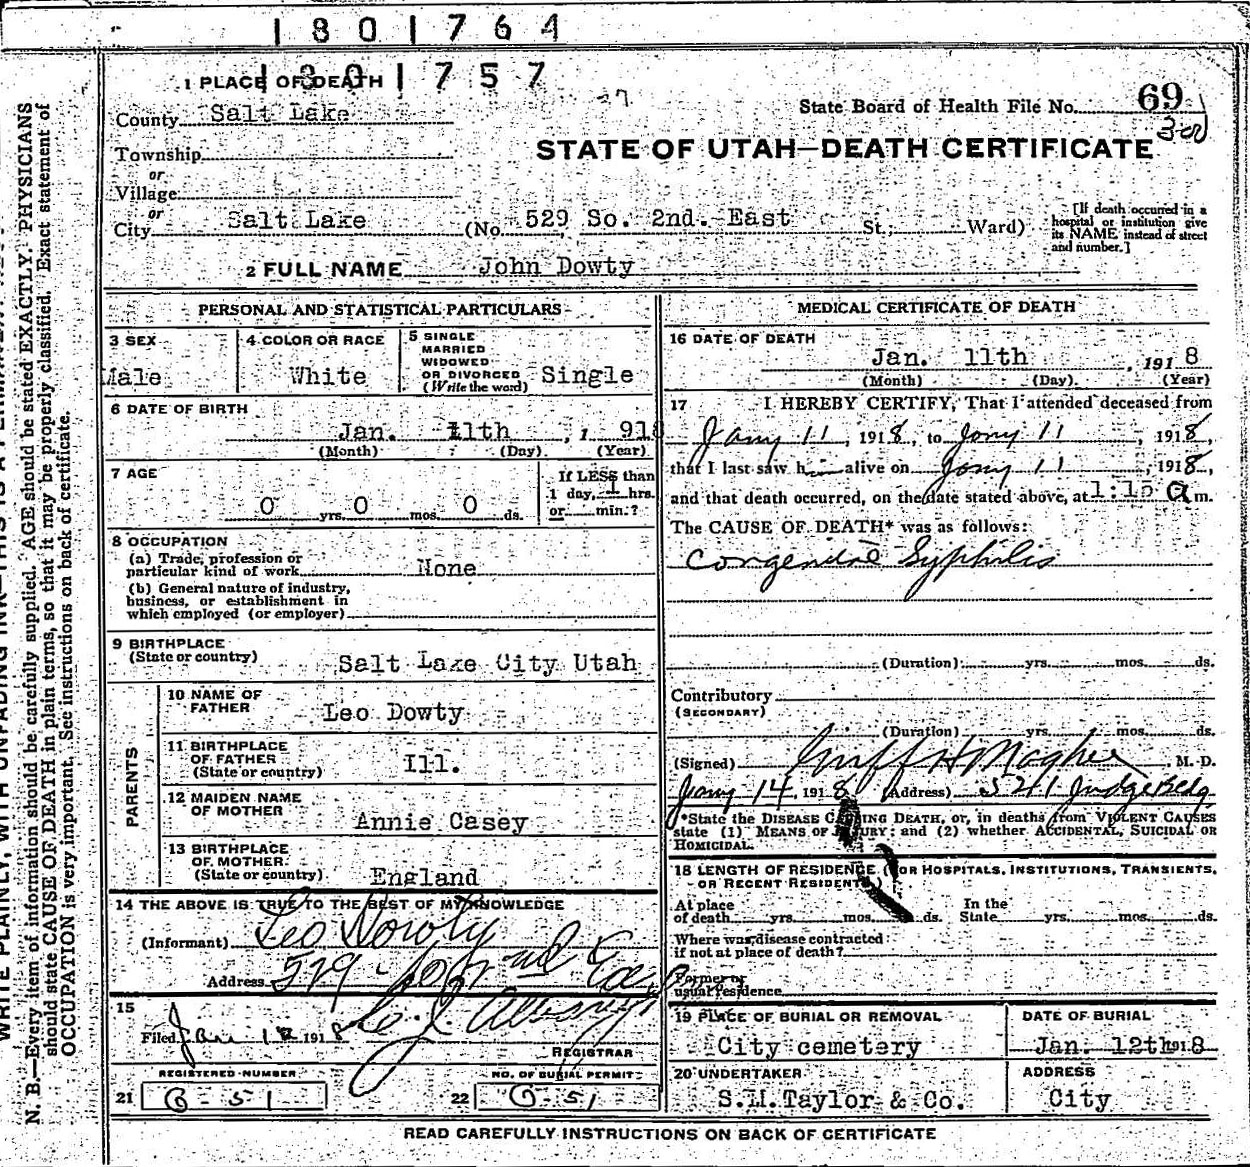 1801764
1301757
1 PLACE OF DEATH
County Salt Lake
State Board of Health File No. 69
300
Township
or
Village
or
City Salt Lake (No. 529 So. 2nd. East St.; Ward)
STATE OF UTAH—DEATH CERTIFICATE
[If death occurred in a hospital or institution give its NAME instead of street and number.]
2 FULL NAME John Dowty
PERSONAL AND STATISTICAL PARTICULARS
3 SEX
Male
4 COLOR OR RACE
White
5 SINGLE
MARRIED
WIDOWED
OR DIVORCED
(Write the word) Single
6 DATE OF BIRTH
Jan. 11th, 1 918
(Month) (Day) (Year)
7 AGE
0 yrs. 0 mos. 0 ds.
If LESS than
1 day, 1 hrs.
or min.?
8 OCCUPATION
(a) Trade, profession or
particular kind of work None
(b) General nature of industry,
business, or establishment in
which employed (or employer)
9 BIRTHPLACE
(State or country) Salt Lake City Utah
PARENTS
10 NAME OF
FATHER Leo Dowty
11 BIRTHPLACE
OF FATHER
(State or country) Ill.
12 MAIDEN NAME
OF MOTHER Annie Casey
13 BIRTHPLACE
OF MOTHER
(State or country) England
14 THE ABOVE IS TRUE TO THE BEST OF MY KNOWLEDGE
(Informant) Leo Dowty
Address 529 So 2nd East
15
Filed Jan 12 1918
REGISTRAR
REGISTERED NUMBER
21 B-51
NO. OF BURIAL PERMIT
22 B-51
MEDICAL CERTIFICATE OF DEATH
16 DATE OF DEATH
Jan. 11th, 1918
(Month) (Day) (Year)
17 I HEREBY CERTIFY, That I attended deceased from
Jany 11, 1918, to Jany 11, 1918,
that I last saw h alive on Jany 11, 1918,
and that death occurred, on the date stated above, at 1:15 a m.
The CAUSE OF DEATH* was as follows:
Congenital Syphilis
(Duration) yrs. mos. ds.
Contributory
(SECONDARY)
(Duration) yrs. mos. ds.
(Signed) M. D.
Jany 14, 1918 (Address) 521 Judge Bldg.
*State the DISEASE CAUSING DEATH, or, in deaths from VIOLENT CAUSES
state (1) MEANS OF INJURY; and (2) whether ACCIDENTAL, SUICIDAL OR
HOMICIDAL.
18 LENGTH OF RESIDENCE (FOR HOSPITALS, INSTITUTIONS, TRANSIENTS,
OR RECENT RESIDENTS)
At place
of death yrs. mos. ds. In the State yrs. mos. ds.
Where was disease contracted
if not at place of death?
Former or
usual residence
19 PLACE OF BURIAL OR REMOVAL
City cemetery
DATE OF BURIAL
Jan. 12th 1918
20 UNDERTAKER
S.M. Taylor & Co.
ADDRESS
City
READ CAREFULLY INSTRUCTIONS ON BACK OF CERTIFICATE
N. B.—Every item of information should be carefully supplied. AGE should be stated EXACTLY. PHYSICIANS
should state CAUSE OF DEATH in plain terms, so that it may be properly classified. Exact statement of
OCCUPATION is very important. See instructions on back of certificate.